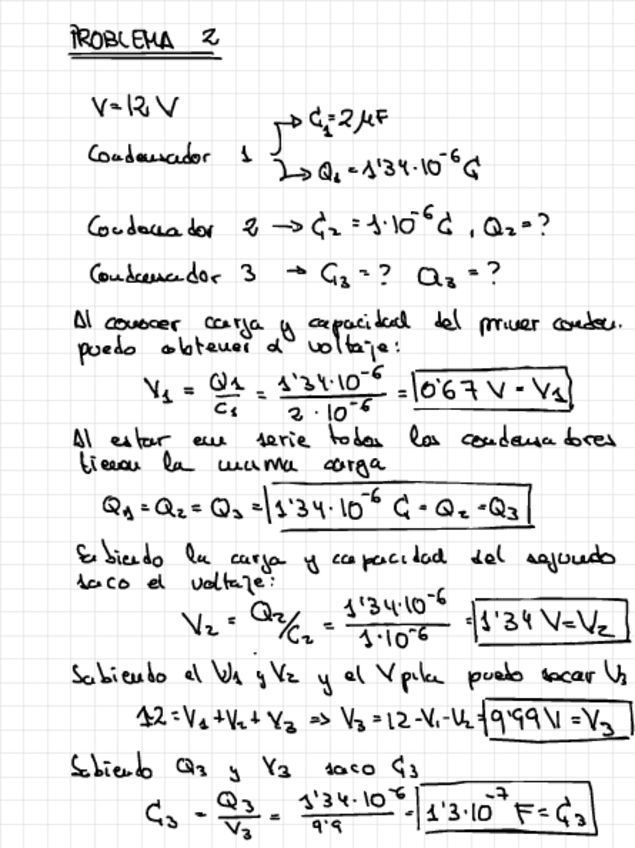 PROBLEMA 2
V=12 V
Condensador 1 → C₁=2 μF
→ Q₁ = 1'34·10⁻⁶ C
Condensador 2 → C₂ = 1·10⁻⁶ C, Q₂=?
Condensador 3 → C₃ = ? Q₃ = ?
Al conocer carga y capacidad del primer conden.
puedo obtener el voltaje:
V₁ = Q₁/C₁ = 1'34·10⁻⁶/2·10⁻⁶ = 0'67 V = V₁
Al estar en serie todos los condensadores
tienen la misma carga
Q₁ = Q₂ = Q₃ = 1'34·10⁻⁶ C = Q₂ = Q₃
Sabiendo la carga y capacidad del segundo
saco el voltaje:
V₂ = Q₂/C₂ = 1'34·10⁻⁶/1·10⁻⁶ = 1'34 V = V₂
Sabiendo el V₁ y V₂ y el V pila puedo sacar V₃
12 = V₁ + V₂ + V₃ ⇒ V₃ = 12 - V₁ - V₂ = 9'99 V = V₃
Sabiendo Q₃ y V₃ saco C₃
C₃ = Q₃/V₃ = 1'34·10⁻⁶/9'9 = 1'3·10⁻⁷ F = C₃